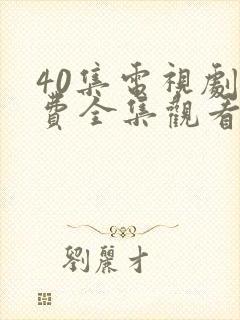 40集電視劇
費全集觀看
劉麗才